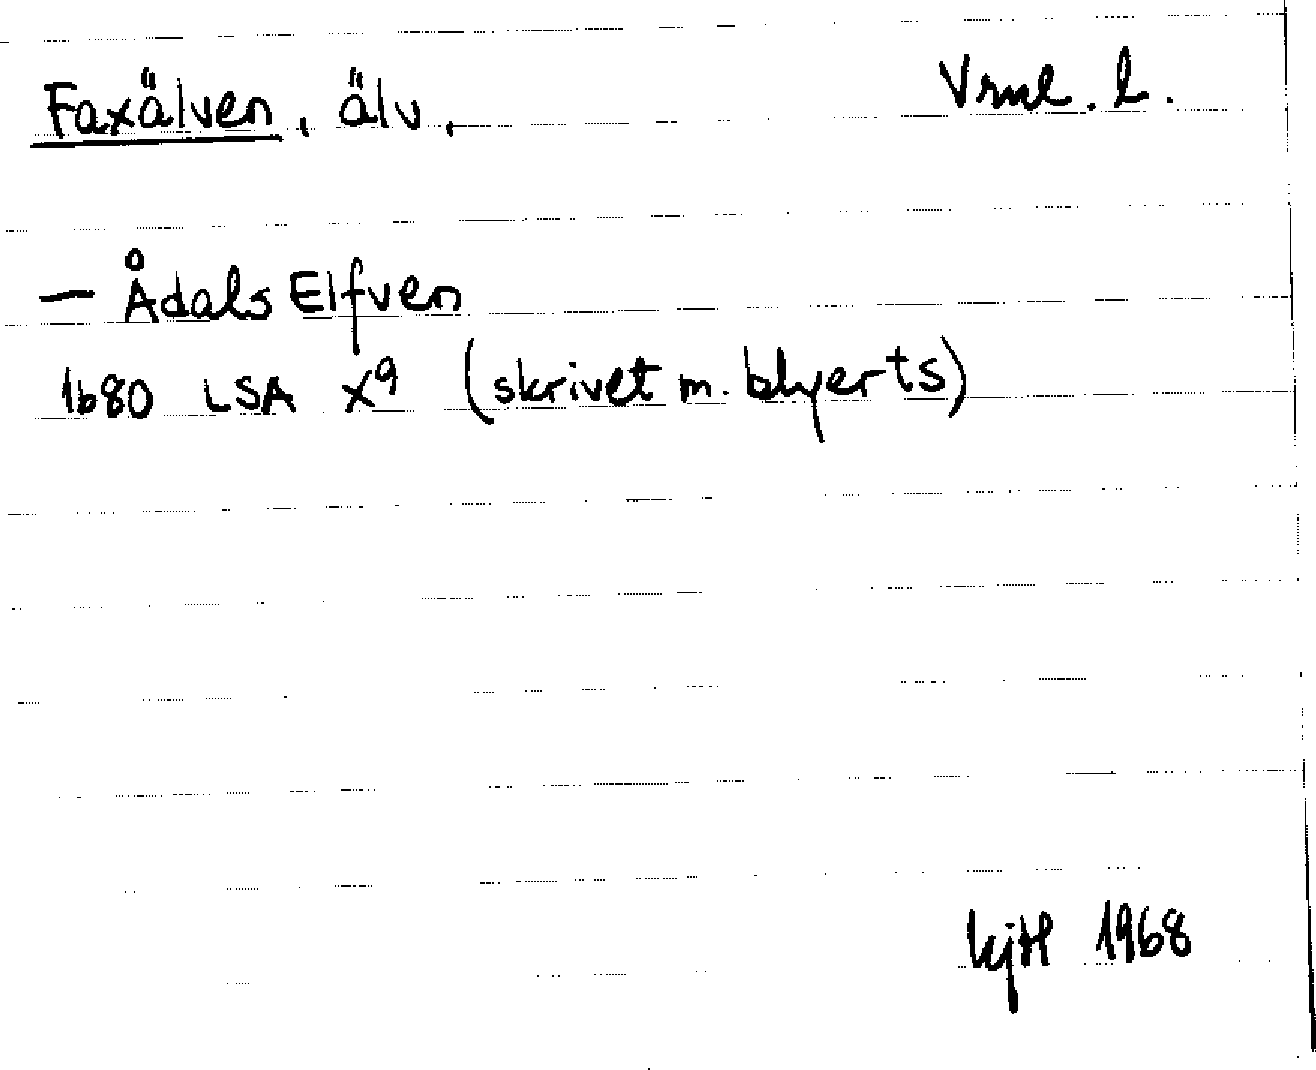 Faxälven, älv, Vrml. l.
— Ådals Elfven
1680 LSA X⁹ (skrivet m. blyerts)
kjH 1968